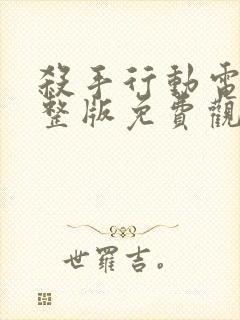 殺手行動電
整版免費觀
世羅吉。